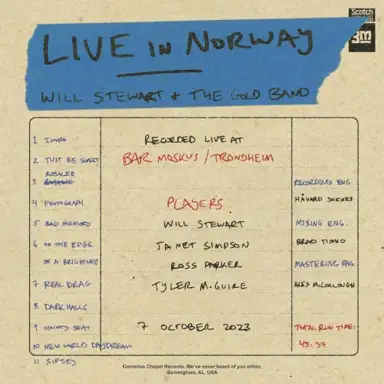 Scotch
3M
LIVE IN NORWAY
WILL STEWART + THE GOLD BAND
1 INTRO
2 JUST BE SWEET
ROSALEE
3
4 PHOTOGRAPH
5 BAD MEMORY
6 ON THE EDGE
OF A BRIGHTNESS
7 REAL DRAG
8 DARK HALLS
9 COUNTY SEAT
10 NEW WORLD DAYDREAM
11 SIPSEY
RECORDED LIVE AT
BAR MOSKUS / TRONDHEIM
PLAYERS
WILL STEWART
JANET SIMPSON
ROSS PARKER
TYLER McGUIRE
7 OCTOBER 2023
RECORDING ENG.
HÅVARD SOKNES
MIXING ENG.
BRAD TIMKO
MASTERING ENG.
ALEX McCOLLOUGH
TOTAL RUN TIME:
43:37
Cornelius Chapel Records. We've never heard of you either.
Birmingham, AL, USA